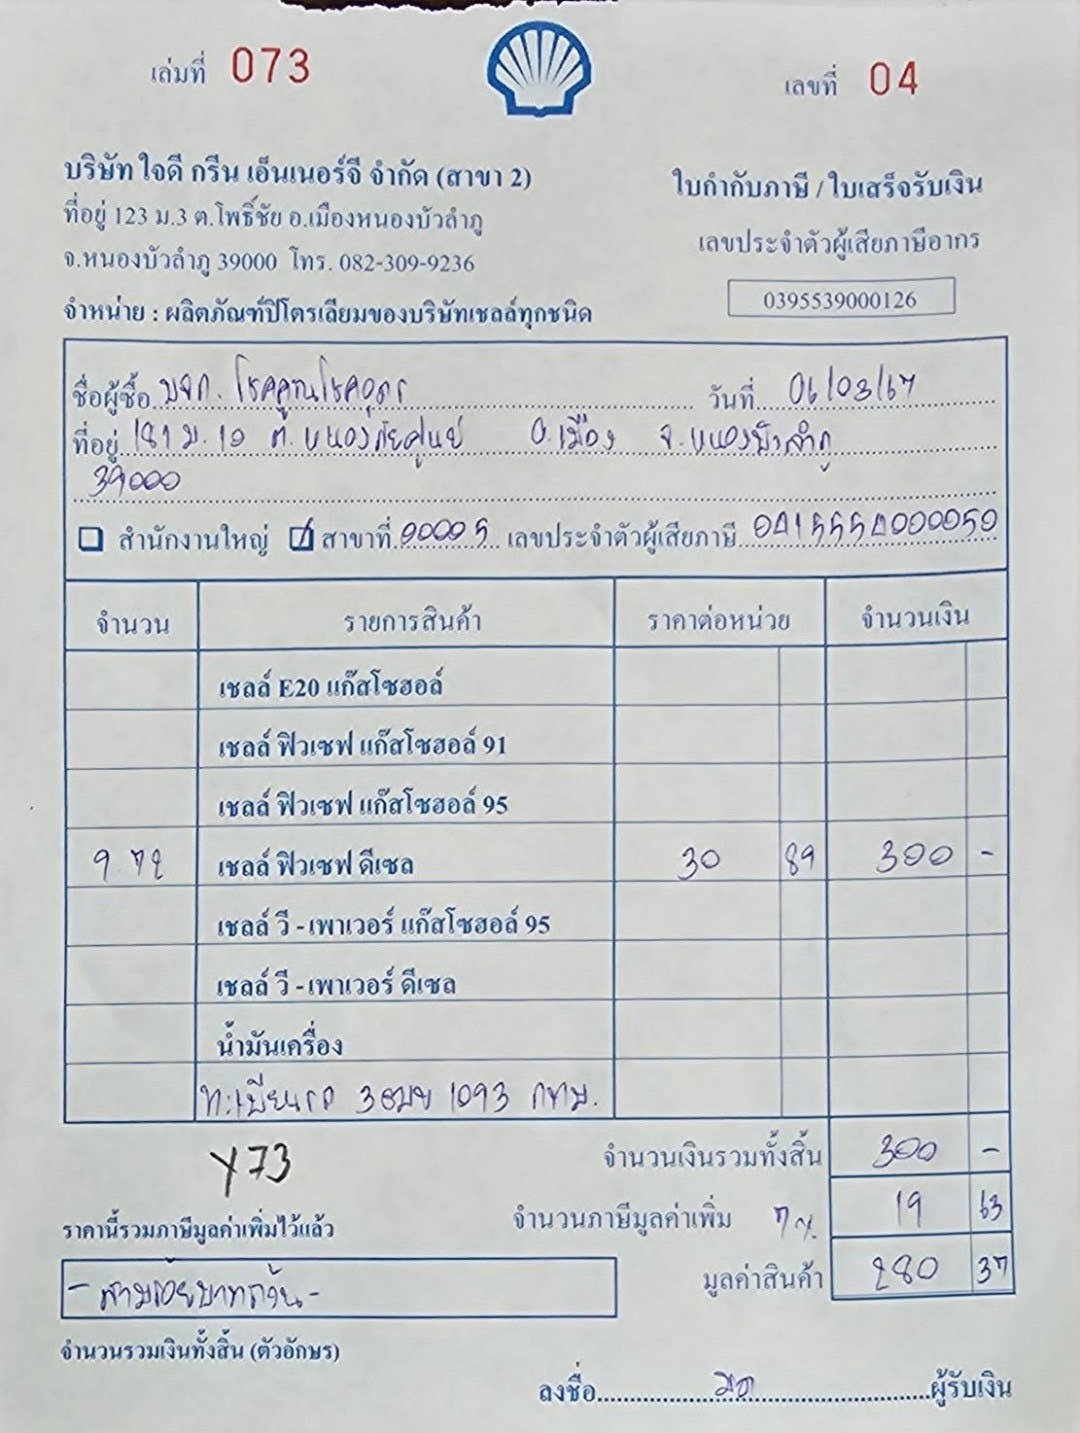 เล่มที่ 073
เลขที่ 04
บริษัท ใจดี กรีน เอ็นเนอร์จี จำกัด (สาขา 2)
ที่อยู่ 123 ม.3 ต.โพธิ์ชัย อ.เมืองหนองบัวลำภู
จ.หนองบัวลำภู 39000 โทร. 082-309-9236
จำหน่าย : ผลิตภัณฑ์ปิโตรเลียมของบริษัทเชลล์ทุกชนิด
ใบกำกับภาษี / ใบเสร็จรับเงิน
เลขประจำตัวผู้เสียภาษีอากร
0395539000126
ชื่อผู้ซื้อ บจก. โชคคูณโชคอุดร วันที่ 06/03/67
ที่อยู่ 181 ม. 10 ต. หนองภัยศูนย์ อ.เมือง จ. หนองบัวลำภู
39000
สำนักงานใหญ่ สาขาที่ 00005 เลขประจำตัวผู้เสียภาษี 0415554000050
จำนวน รายการสินค้า ราคาต่อหน่วย จำนวนเงิน
เชลล์ E20 แก๊สโซฮอล์
เชลล์ ฟิวเซฟ แก๊สโซฮอล์ 91
เชลล์ ฟิวเซฟ แก๊สโซฮอล์ 95
9.72 เชลล์ ฟิวเซฟ ดีเซล 30 89 300 -
เชลล์ วี - เพาเวอร์ แก๊สโซฮอล์ 95
เชลล์ วี - เพาเวอร์ ดีเซล
น้ำมันเครื่อง
ทะเบียนรถ 3ฒย 1093 กทม.
Y73
จำนวนเงินรวมทั้งสิ้น 300 -
ราคานี้รวมภาษีมูลค่าเพิ่มไว้แล้ว
จำนวนภาษีมูลค่าเพิ่ม 7% 19 63
- สามร้อยบาทถ้วน -
มูลค่าสินค้า 280 37
จำนวนรวมเงินทั้งสิ้น (ตัวอักษร)
ลงชื่อ ผู้รับเงิน